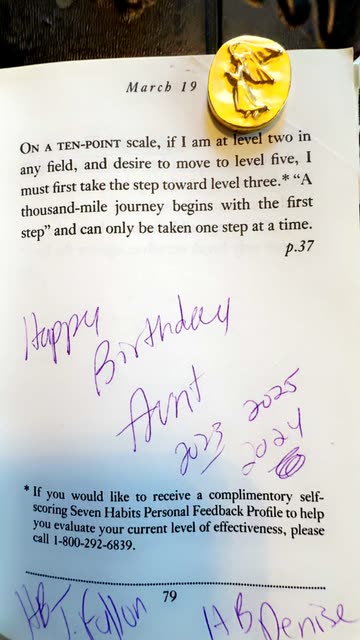 March 19
ON A TEN-POINT scale, if I am at level two in
any field, and desire to move to level five, I
must first take the step toward level three.* "A
thousand-mile journey begins with the first
step" and can only be taken one step at a time.
p.37
Happy
Birthday
Aunt
2023 2025
2024
* If you would like to receive a complimentary self-
scoring Seven Habits Personal Feedback Profile to help
you evaluate your current level of effectiveness, please
call 1-800-292-6839.
79
HB T. Fallon
HB Denise